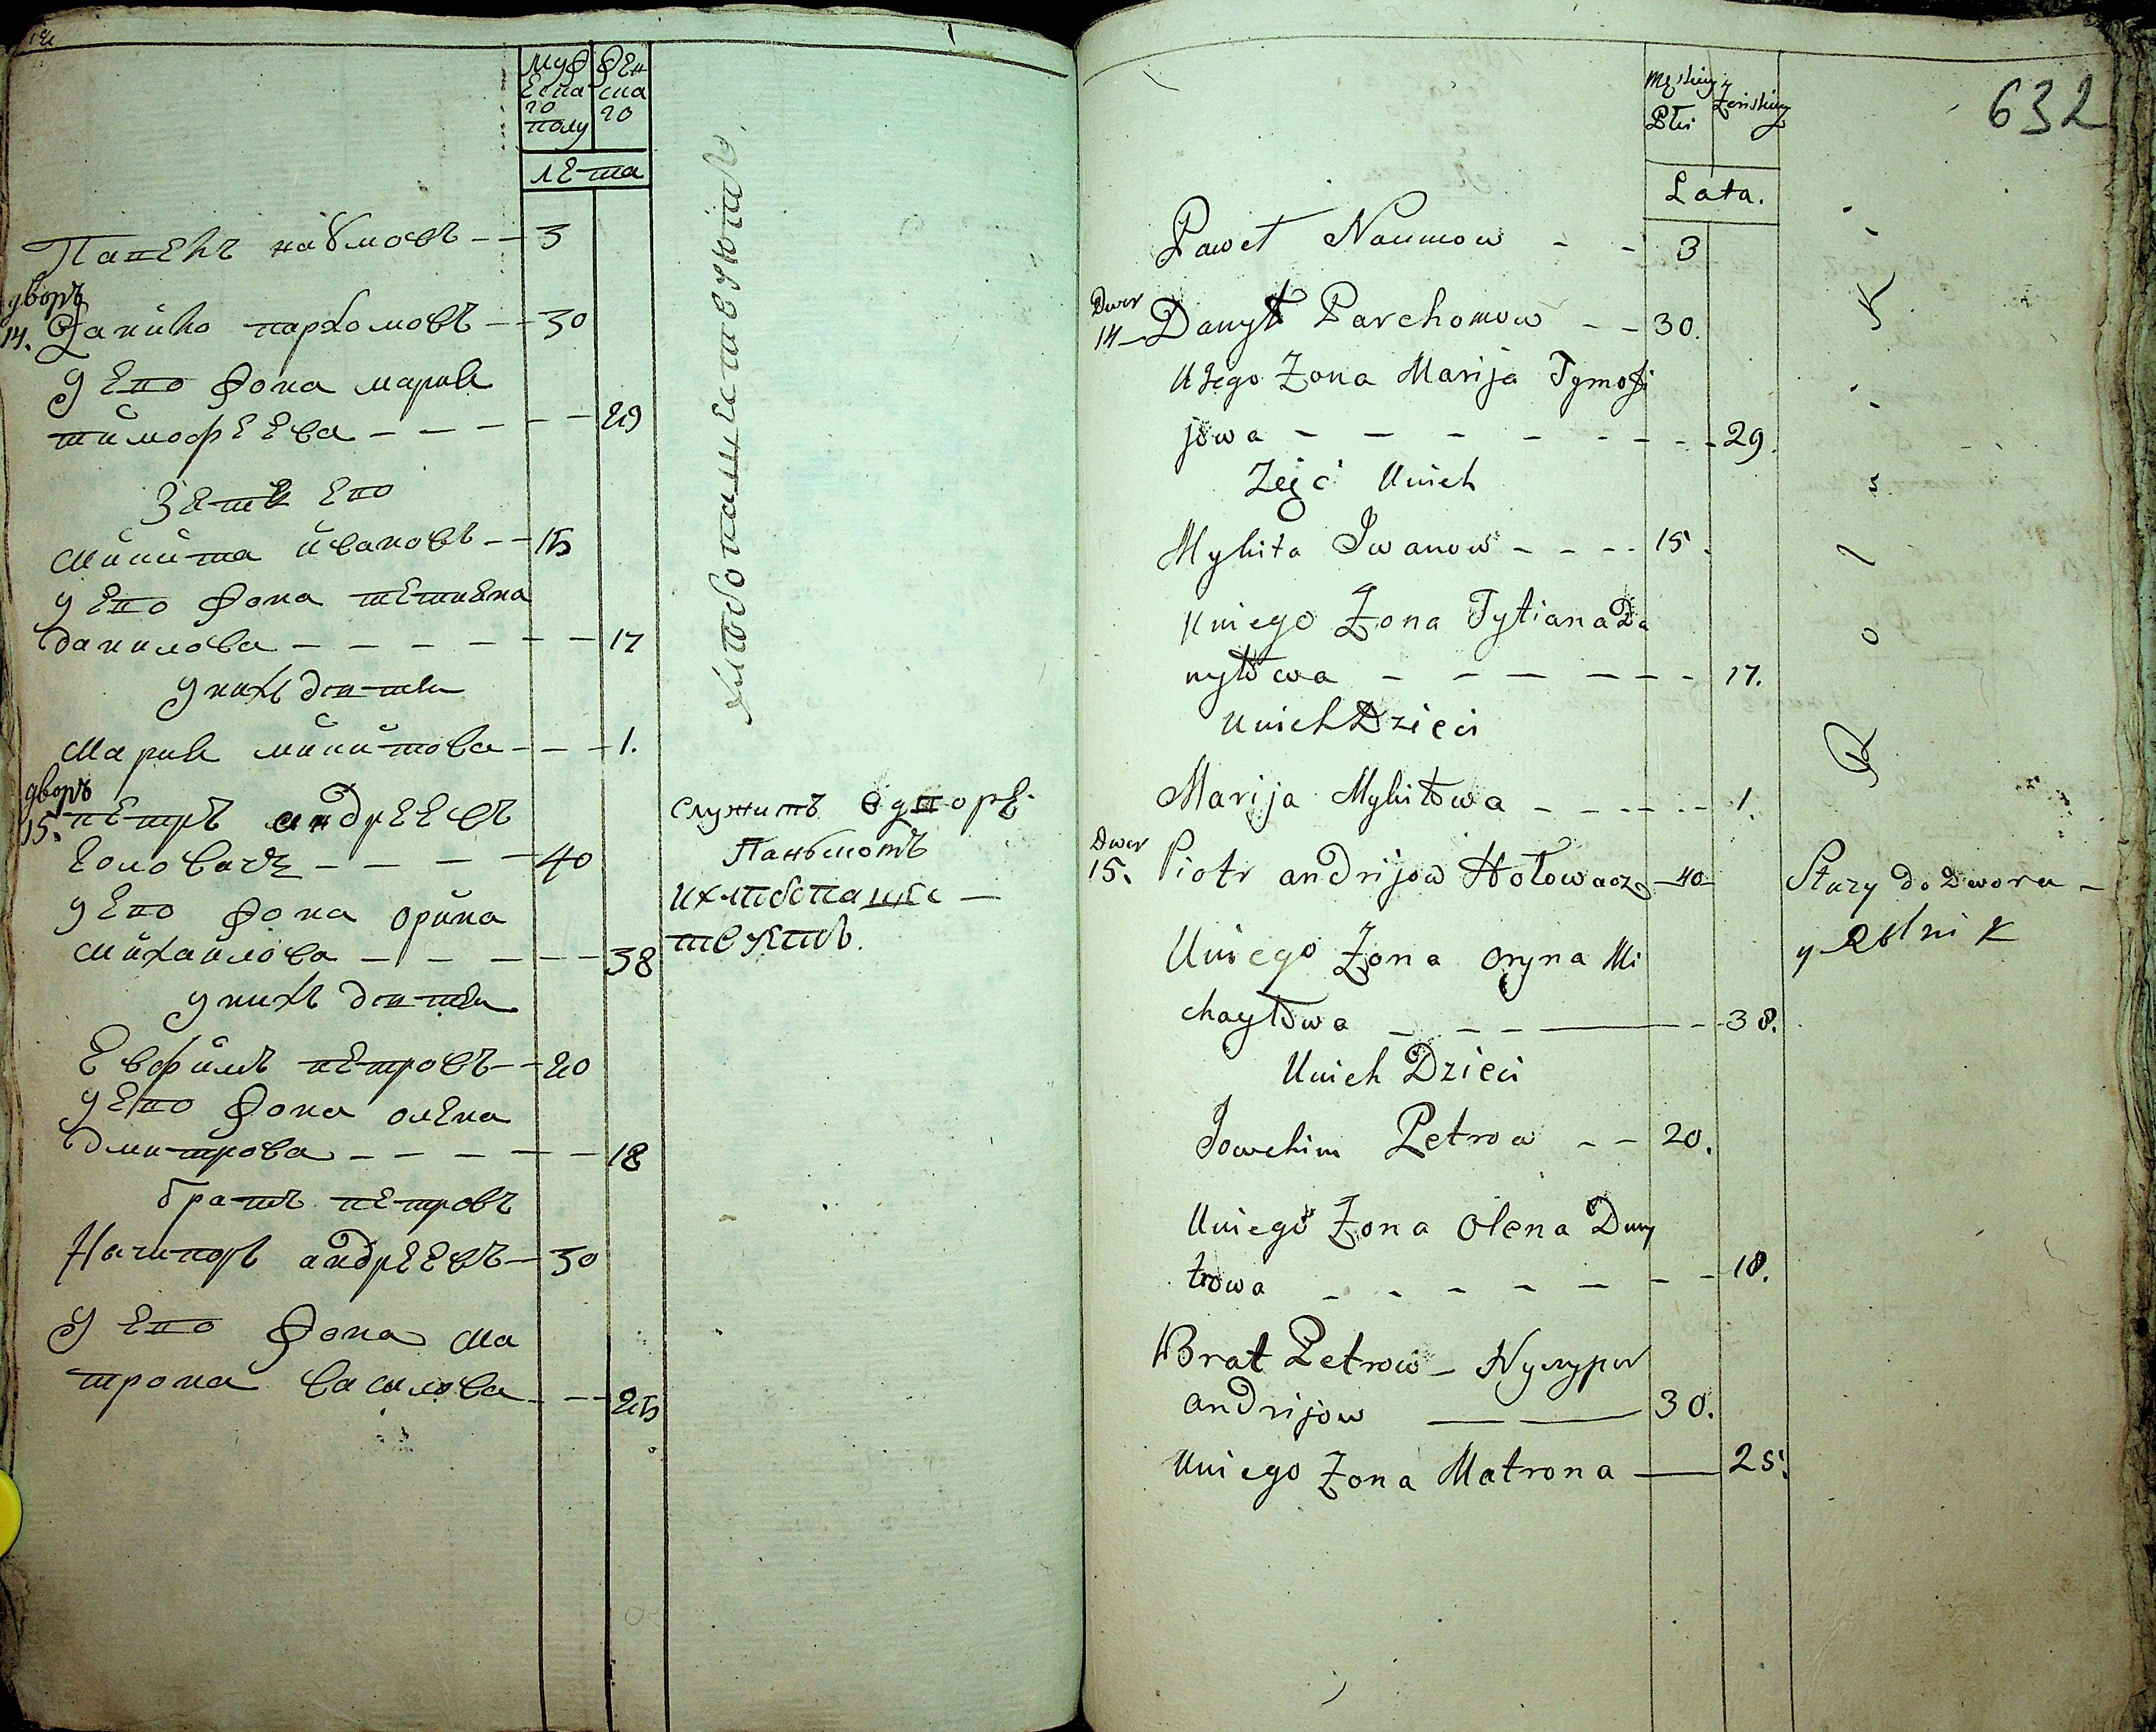 Мужеска го полу
женска го
лета
Павелъ наѵмовъ 3
дворъ
14. Данило пархомовъ 30
у его жона мария
тимофеева 29
Зеть его
микита ивановъ 15
у его жона тетияна
данилова 17
у нихъ дети
Мария микитова 1.
дворъ
15. петръ андреевъ
головачъ 40
у его жона орина
михаилова 38
у нихъ дети
Евфимъ петровъ 20
у его жона олена
дмитрова 18
братъ петровъ
Ничипоръ андреевъ 30
у его жона ма
трона василова 25
хлебопашествуютъ
служитъ в дворе
Паньскомъ
и хлебопаше
ствуетъ.
632
Męskiey Płci
Żeńskiey
Lata.
Paweł Naumow 3
Dwor
14 Danyło Parchomow 30.
U Jego Żona Marija Tymofi
jowa 29.
Zęć Unich
Mykita Iwanow 15.
Uniego Żona Tytiana Da
nyłowa 17.
Unich Dzieci
Marija Mykitowa 1.
Dwor
15. Piotr andrijow Hołowacz 40
Uniego Żona oryna Mi
chayłowa 38.
Unich Dzieci
Jowchim Petrow 20.
Uniego Żona olena Dmy
trowa 18.
Brat Petrow Nyczypor
andrijow 30.
Uniego Żona Matrona 25.
R o l n i K
Służy do Dworu
y Rolnik